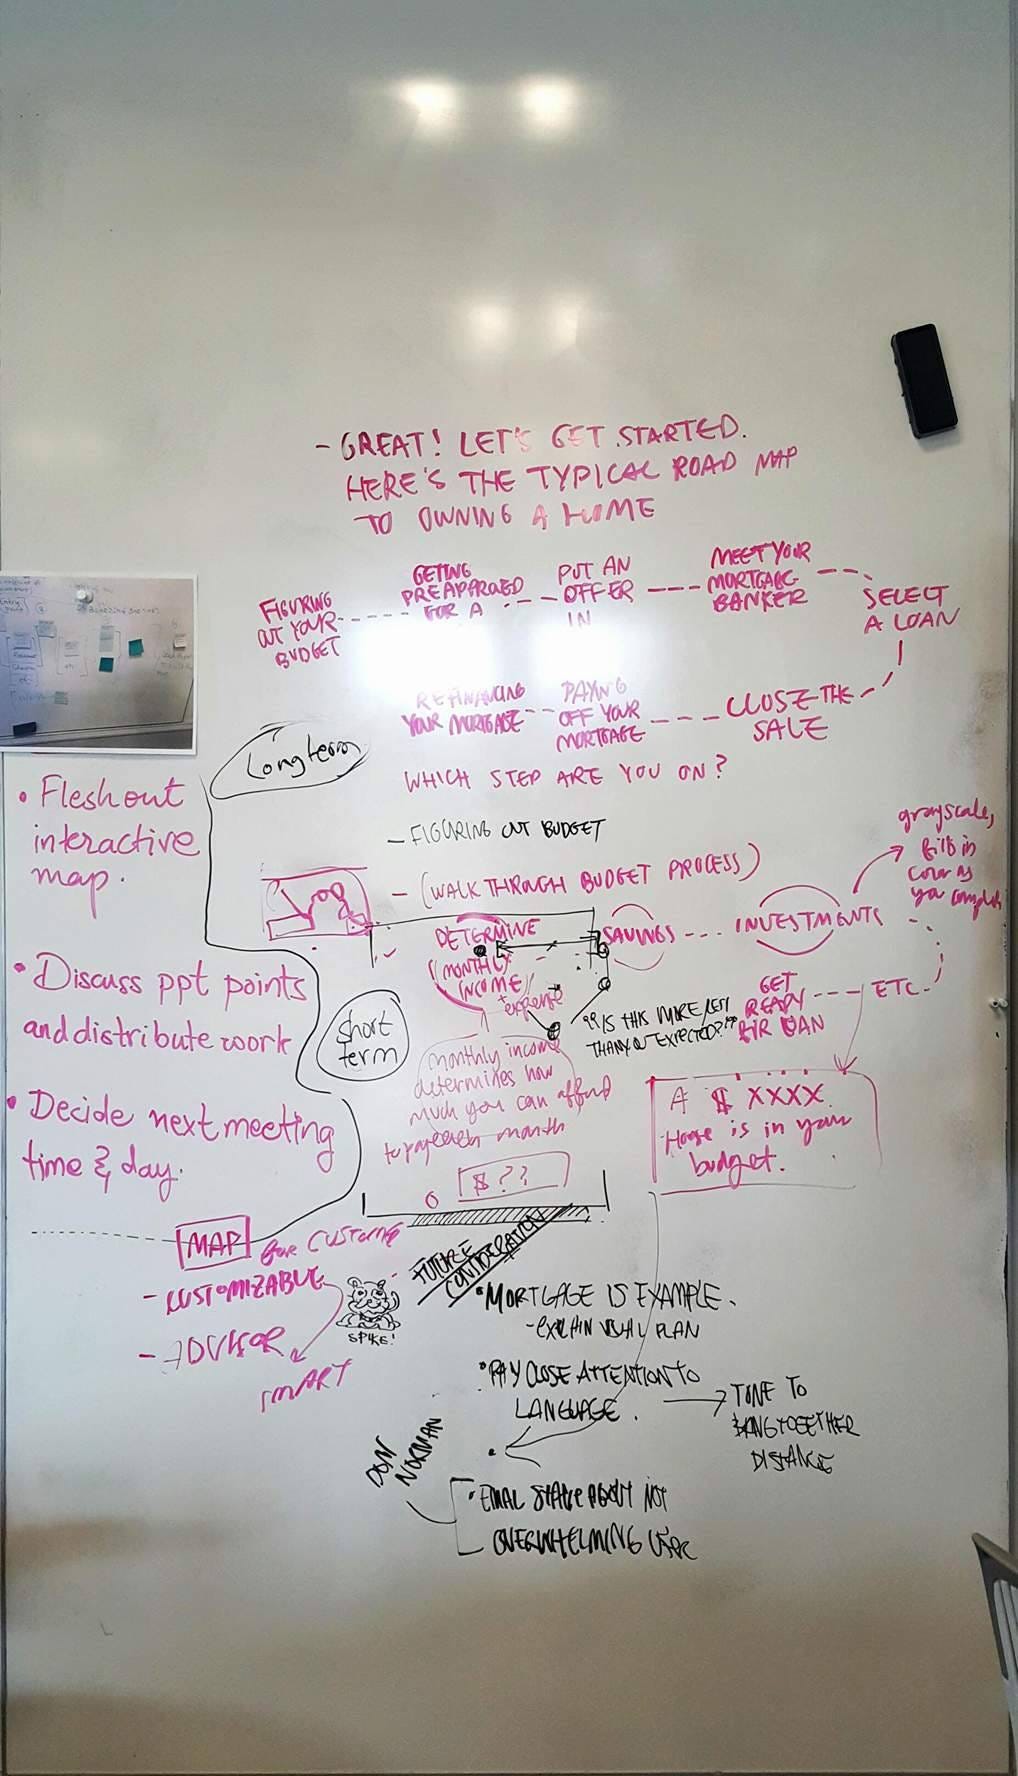 - GREAT! LET'S GET STARTED.
HERE'S THE TYPICAL ROAD MAP
TO OWNING A HOME
FIGURING
OUT YOUR
BUDGET
GETING
PREAPPROVED
FOR A
PUT AN
OFFER
IN
MEET YOUR
MORTGAGE
BANKER
SELECT
A LOAN
CLOSE THE
SALE
PAYING
OFF YOUR
MORTGAGE
REFINANCING
YOUR MORTGAGE
WHICH STEP ARE YOU ON?
- FIGURING OUT BUDGET
- (WALK THROUGH BUDGET PROCESS)
DETERMINE
MONTHLY
INCOME
+ expense
SAVINGS
INVESTMENTS
grayscale,
fills in
color as
you complete
ETC.
GET
READY
FOR LOAN
"IS THIS MORE/LESS
THAN YOU EXPECTED?"
monthly income
determines how
much you can afford
to pay each month
$ ??
A $ XXXX
House is in your
budget.
Long term
• Flesh out
interactive
map.
• Discuss ppt points
and distribute work
short
term
• Decide next meeting
time & day.
MAP for CUSTOMER
- CUSTOMIZABLE
- ADVISOR
SMART
SPIKE!
FUTURE
CONSIDERATION
• MORTGAGE IS EXAMPLE.
- EXPLAIN PLAN
• PAY CLOSE ATTENTION TO
LANGUAGE.
TONE TO
BRING TOGETHER
DISTANCE
DON
NORMAN
• ABOUT NOT
OVERWHELMING USER